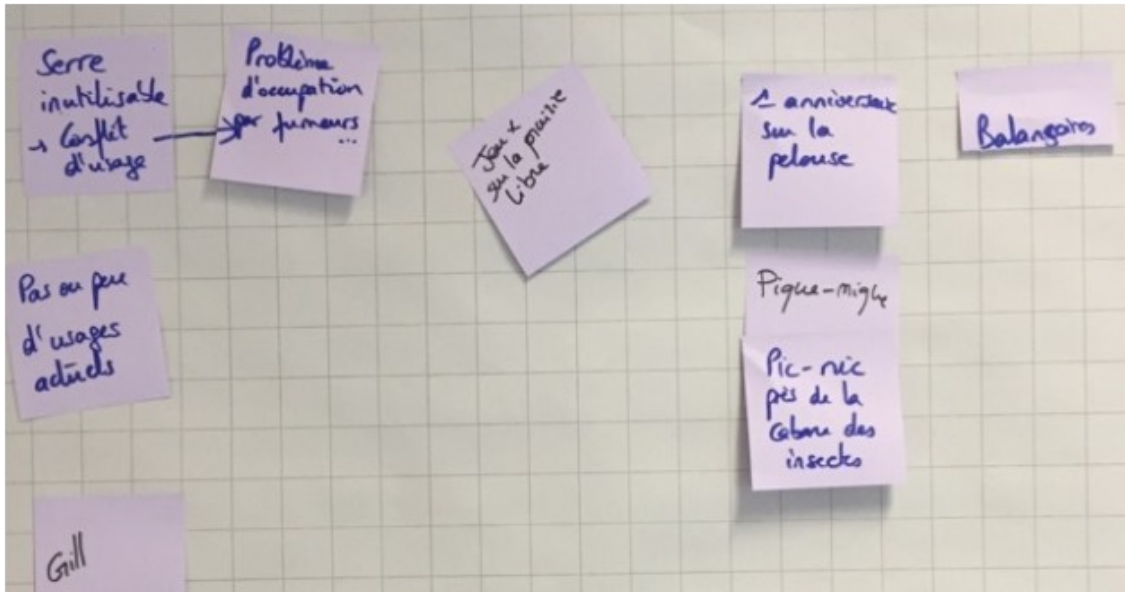 Serre
inutilisable
→ Conflit
d'usage
Problème
d'occupation
par fumeurs
...
Jeux
sur la prairie
libre
1 anniversaire
sur la
pelouse
Balançoires
Pas ou peu
d'usages
actuels
Pique-nique
Pic-nic
près de la
cabane des
insectes
Grill